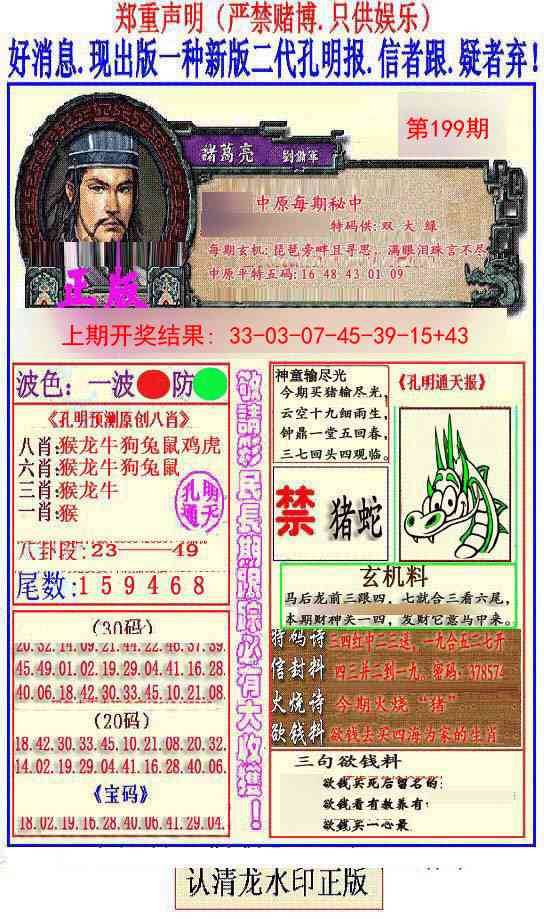 郑重声明（严禁赌博.只供娱乐）
好消息.现出版一种新版二代孔明报.信者跟.疑者弃!
第199期
諸葛亮 劉備軍
中原每期秘中
特码供:双大绿
每期玄机:琵琶旁畔且寻思，满眼泪珠言不尽
中原平特五码:16 48 43 01 09
正版
上期开奖结果: 33-03-07-45-39-15+43
波色: 一波 防
《孔明预测原创八肖》
八肖:猴龙牛狗兔鼠鸡虎
六肖:猴龙牛狗兔鼠
三肖:猴龙牛
一肖:猴
孔明通天
八卦段:23——49
尾数:159468
(30码)
20.32.14.09.21.44.22.48.37.39
45.49.01.02.19.29.04.41.16.28
40.06.18.42.30.33.45.10.21.08
(20码)
18.42.30.33.45.10.21.08.20.32.
14.02.19.29.04.41.16.28.40.06.
《宝码》
18.02.19.16.28.40.06.41.29.04.
敬請彩民長期跟踪必有大收獲!
神童输尽光
今期买猪输尽光，
云空十九细雨生，
钟鼎一堂五回春，
三七回头四观临。
《孔明通天报》
禁 猪蛇
玄机料
马后龙前三跟四，七就合三看六尾，
本期财神关一四，发财它意马甲来。
特码诗 三四红中二三送，一九合五二七开
信封料 四三并二到一九。密码：378574
火烧诗 今期火烧“猪”
欲钱料 欲钱去买四海为家的生肖
三句欲钱料
欲钱买死后留名的:
欲钱看有教养有:
欲钱买一心最
认清龙水印正版